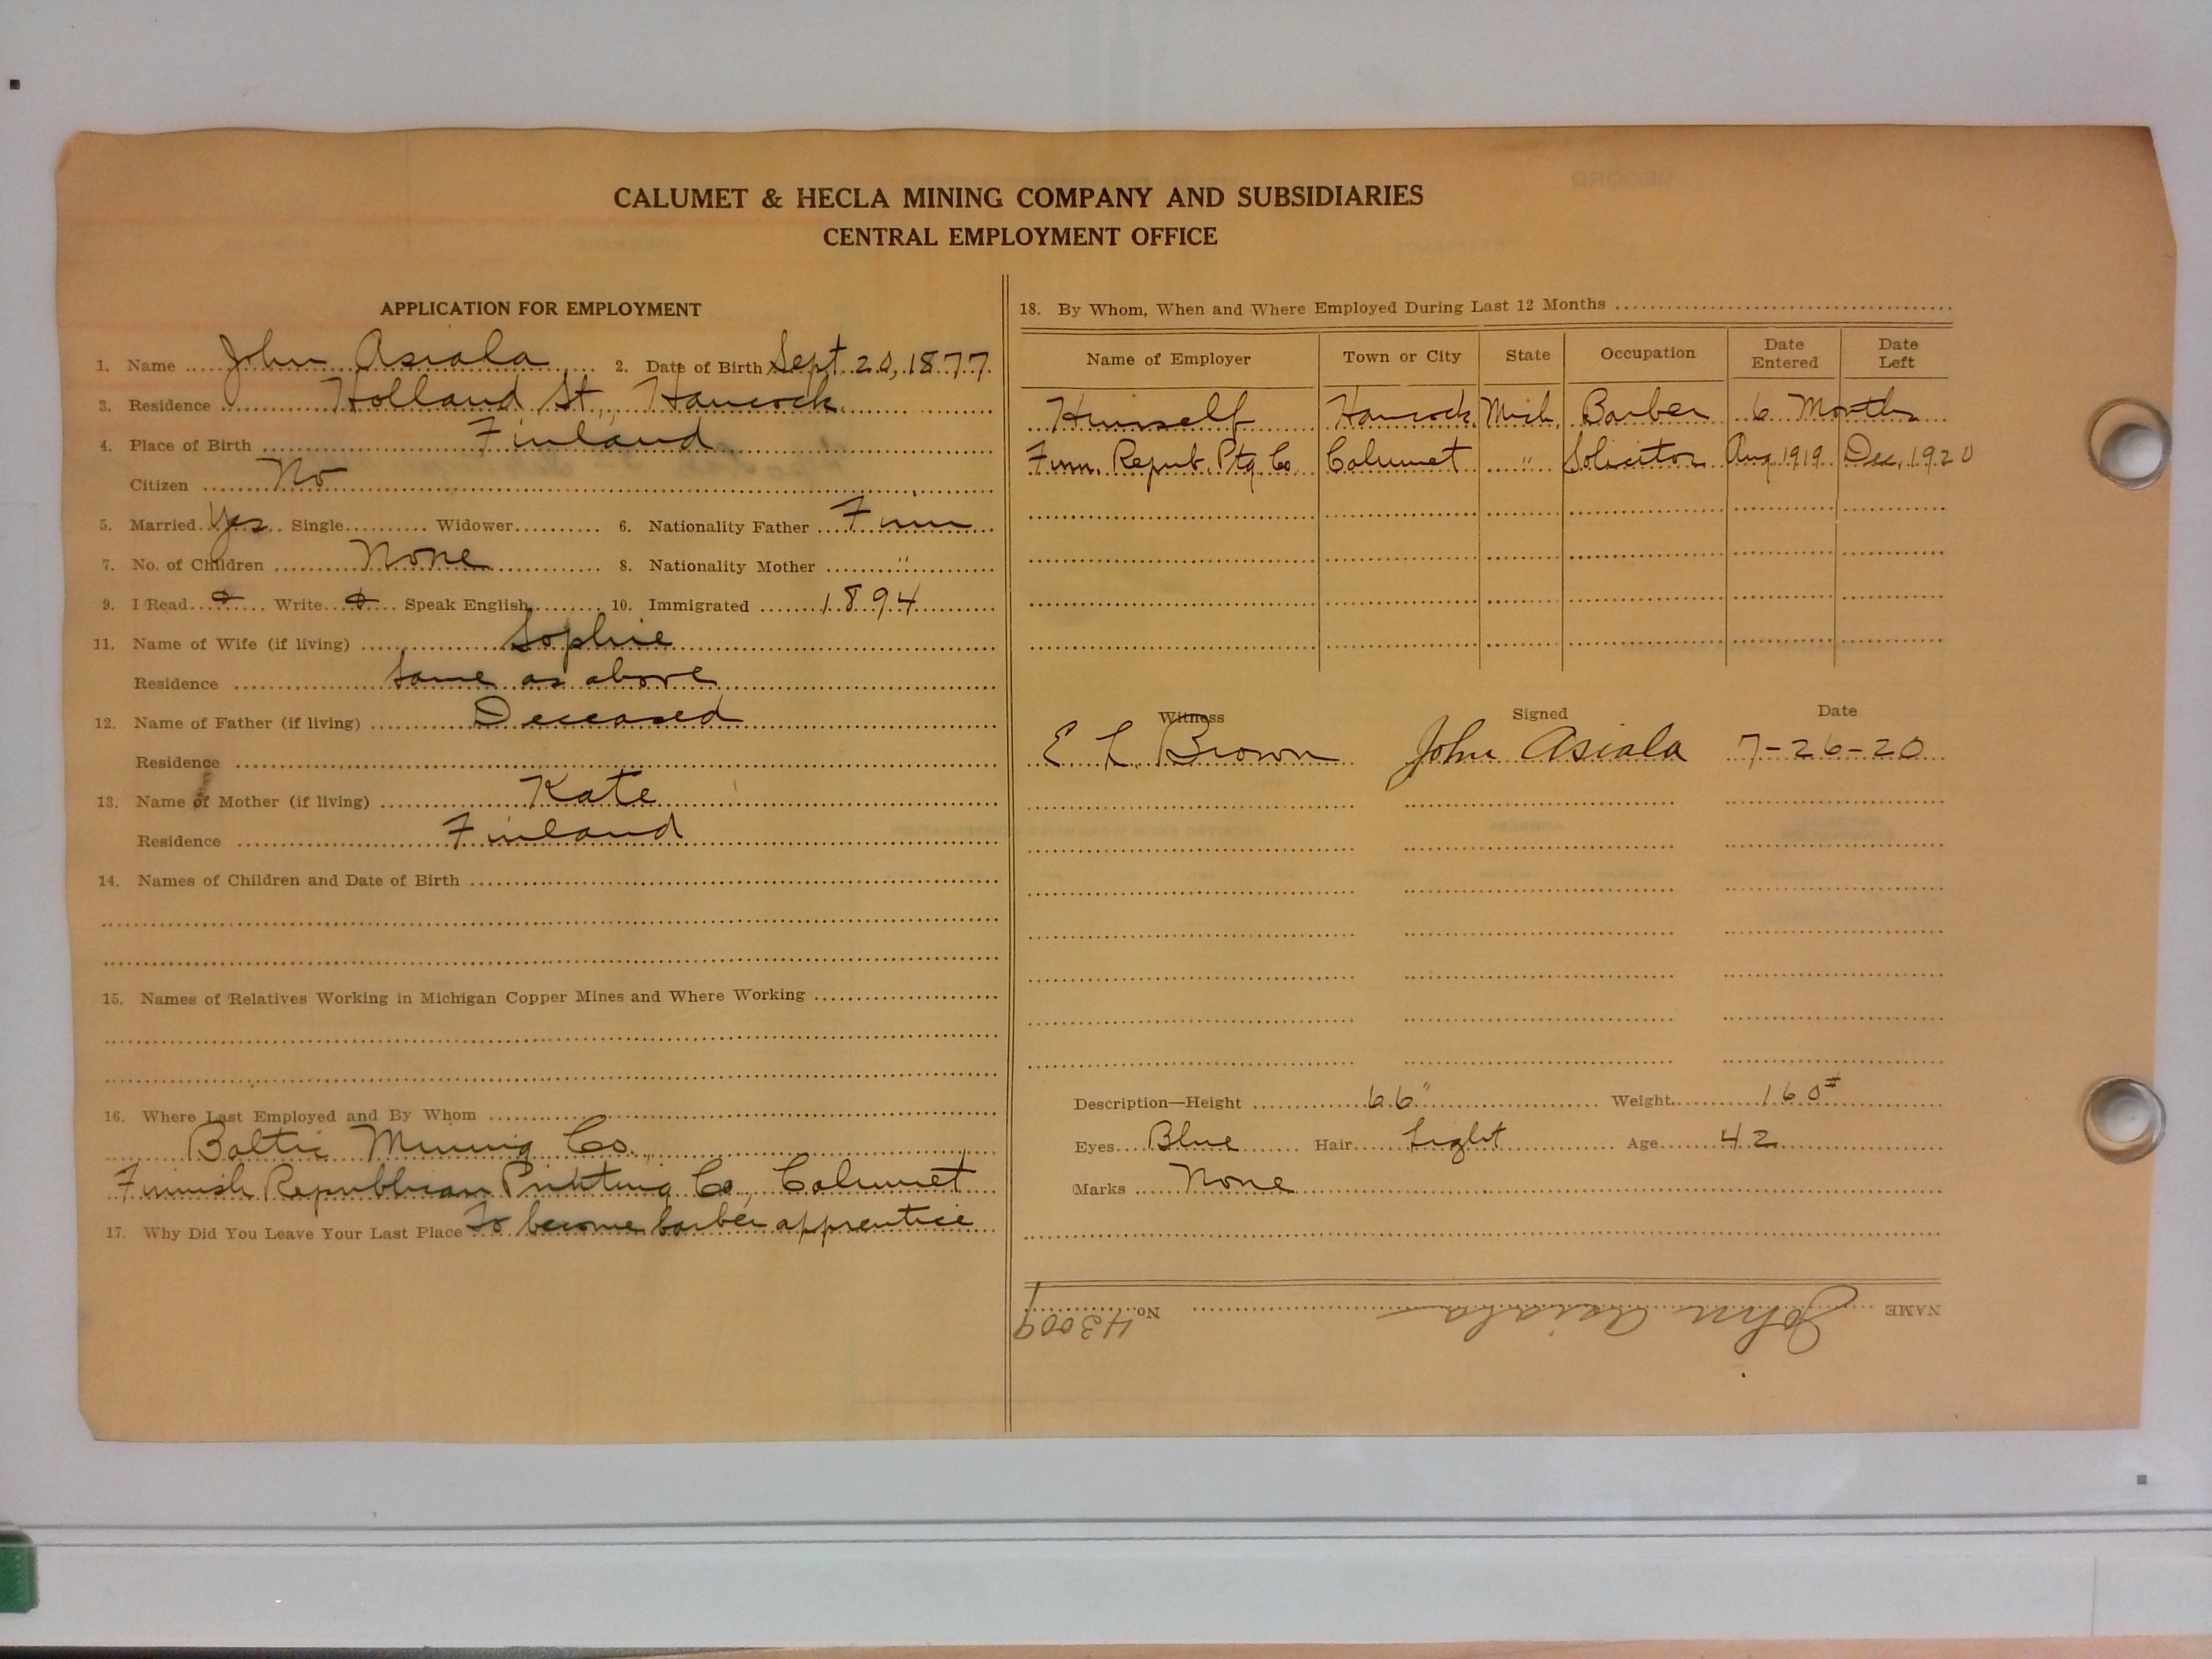 CALUMET & HECLA MINING COMPANY AND SUBSIDIARIES
CENTRAL EMPLOYMENT OFFICE
APPLICATION FOR EMPLOYMENT
1. Name John Asiala 2. Date of Birth Sept 20, 1877
3. Residence Holland St., Hancock
4. Place of Birth Finland
Citizen No
5. Married Yes Single Widower 6. Nationality Father Finn
7. No. of Children None 8. Nationality Mother "
9. I Read Write Speak English 10. Immigrated 1894
11. Name of Wife (if living) Sophie
Residence Same as above
12. Name of Father (if living) Deceased
Residence
13. Name of Mother (if living) Kate
Residence Finland
14. Names of Children and Date of Birth
15. Names of Relatives Working in Michigan Copper Mines and Where Working
16. Where Last Employed and By Whom
Baltic Mining Co.,
Finnish Republican Printing Co., Calumet
17. Why Did You Leave Your Last Place To become barber apprentice
18. By Whom, When and Where Employed During Last 12 Months
Name of Employer Town or City State Occupation Date Entered Date Left
Himself Hancock Mich. Barber 6 Months
Finn. Repub. Ptg Co Calumet " Solicitor Aug 1919 Dec. 1920
Witness Signed Date
E L Brown John Asiala 7-26-20
Description—Height 66" Weight 160#
Eyes Blue Hair Light Age 42
Marks None
NAME John Asiala No. 43009